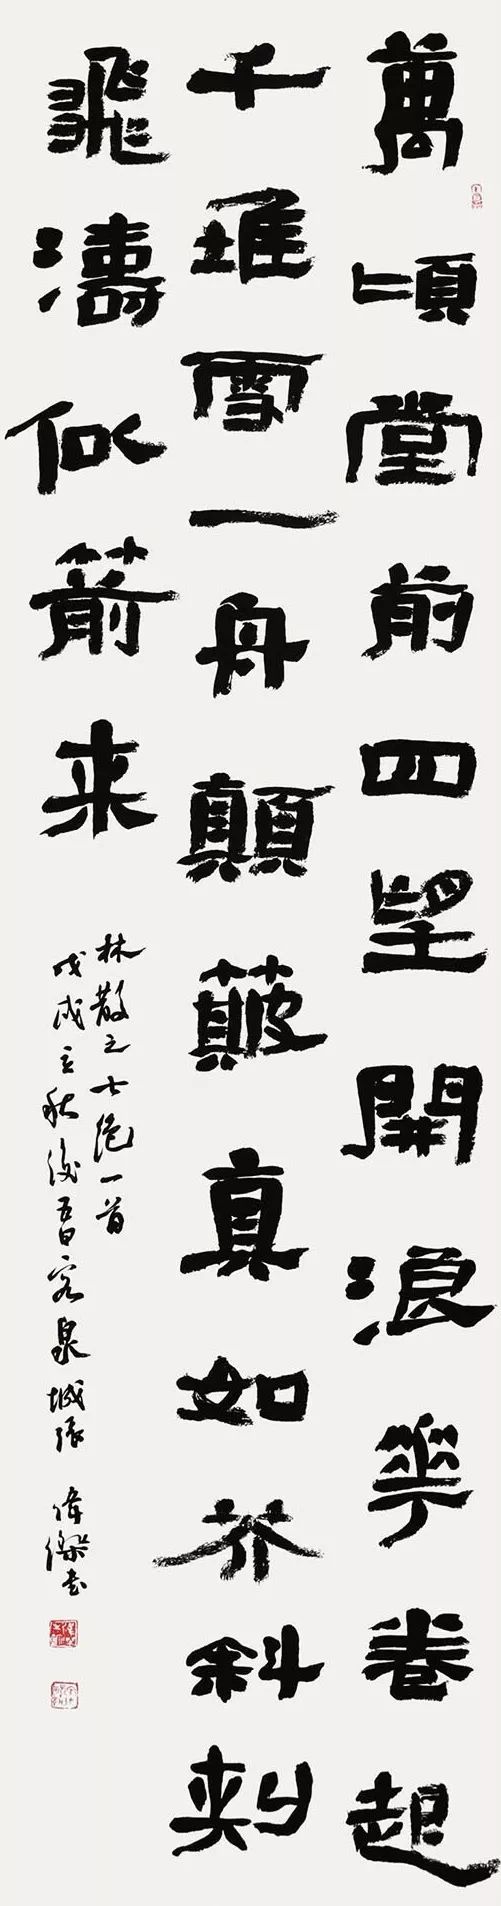 萬頃堂前四望開浪華卷起
千堆雪一舟顛簸真如芥斜刺
飛濤似箭来
林散之七絶一首
戊戌立秋後五日客泉城張偉傑書